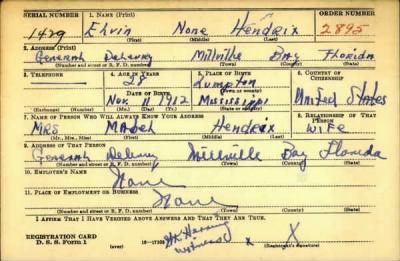 SERIAL NUMBER 1. NAME (Print) ORDER NUMBER
1429 Elvin None Hendrix 2895
(First) (Middle) (Last)
2. ADDRESS (Print)
General Delivery Millville Bay Florida
(Number and street or R. F. D. number) (Town) (County) (State)
3. TELEPHONE 4. AGE IN YEARS 5. PLACE OF BIRTH 6. COUNTRY OF CITIZENSHIP
28 Lumpton
DATE OF BIRTH (Town or county)
Nov. 1912 Mississippi United States
(Exchange) (Number) (Mo.) (Day) (Yr.) (State or country)
7. NAME OF PERSON WHO WILL ALWAYS KNOW YOUR ADDRESS 8. RELATIONSHIP OF THAT PERSON
Mrs Mabel Hendrix Wife
(Mr., Mrs., Miss) (First) (Middle) (Last)
9. ADDRESS OF THAT PERSON
General Delivery Millville Bay Florida
(Number and street or R. F. D. number) (Town) (County) (State)
10. EMPLOYER'S NAME
None
11. PLACE OF EMPLOYMENT OR BUSINESS
None
(Number and street or R. F. D. number) (Town) (County) (State)
I AFFIRM THAT I HAVE VERIFIED ABOVE ANSWERS AND THAT THEY ARE TRUE.
REGISTRATION CARD
D. S. S. Form 1 (over) witness X X
(Registrant's signature)